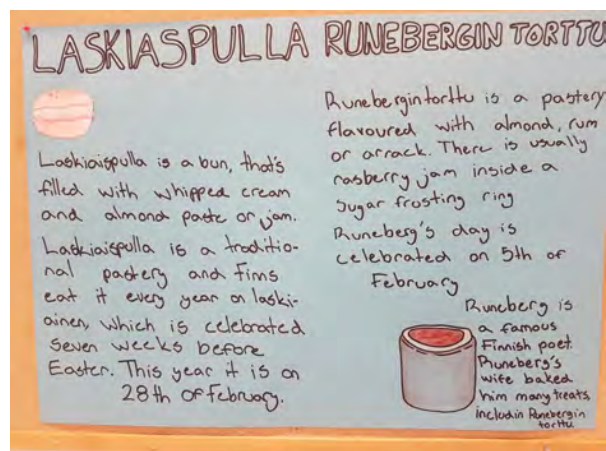 LASKIASPULLA RUNEBERGIN TORTTU
Laskiaispulla is a bun, that's
filled with whipped cream
and almond paste or jam.
Laskiaispulla is a traditio-
nal pastery and finns
eat it every year on laski-
ainen, which is celebrated
seven weeks before
Easter. This year it is on
28th of February.
Runebergintorttu is a pastery
flavoured with almond, rum
or arrack. There is usually
rasberry jam inside a
sugar frosting ring
Runeberg's day is
celebrated on 5th of
February
Runeberg is
a famous
Finnish poet.
Runeberg's
wife baked
him many treats,
includin Runebergin
torttu.